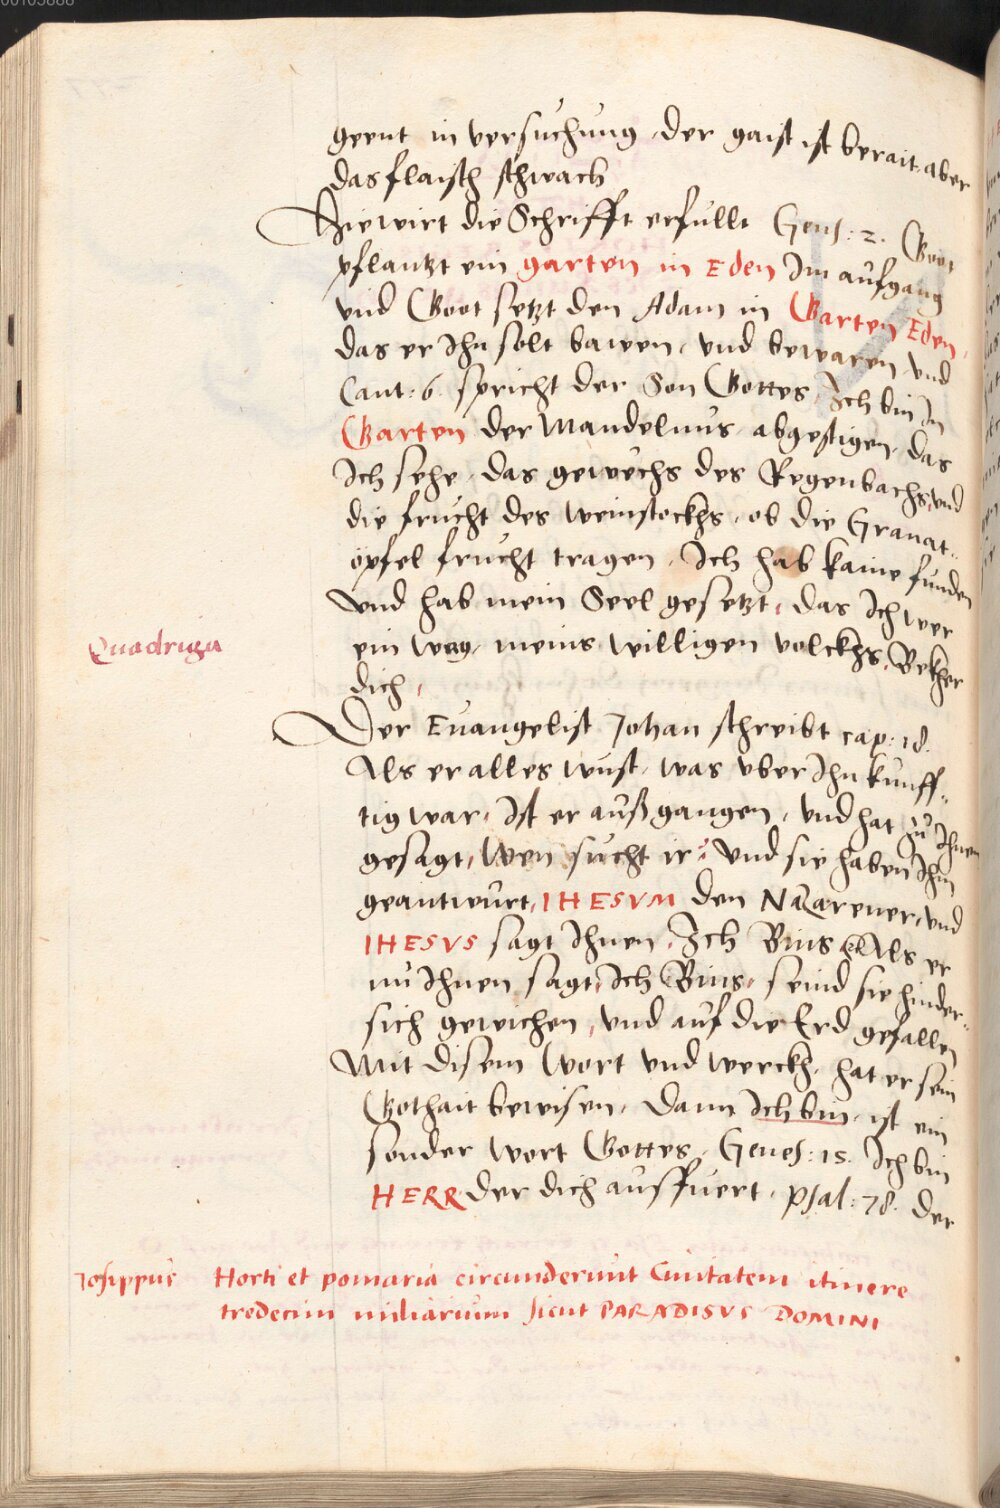 00103888
geent in versuchung, der gaist ist berait, aber
das flaisch schwach
Hie wirt die Schrifft erfullt Gens: 2. Gott
pflantzt ein garten in Eden Im aufgang
vnd Gott setzt den Adam in Garten Eden,
das er Ihn solt bawen, vnd bewaren vnd
Cant: 6. spricht der Son Gottes, Ich bin In
Garten der Mandelnus abgestigen, das
Ich sehe, das gewechs des Regenbachs, vnd
die frucht des weinstockhs, ob die Granat-
öpfel frucht tragen, Ich hab kaine funden
vnd hab mein Seel gesetzt, das Ich wer
Quadriga
ein weg, meins willigen volckhs, Bekher
dich,
Der Euangelist Johan schreibt cap: 18.
Als er alles wust, was vber Ihn kunff-
tig war, Ist er außgangen, vnd hat zu Ihnen
gesagt, Wen sucht ir? vnd sie haben Ihm
geantwurt, IHESVM den Nazarener, vnd
IHESVS sagt Ihnen, Ich Bins Als er
nu Ihnen sagt, Ich Bins, seind sie hinder-
sich gewichen, vnd auf die Erd gefallen
Mit disem Wort vnd werckh, hat er sein
Gothait bewisen, Dann Ich bin, ist ein
sonder wort Gottes, Genes: 15. Ich bin
HERR der dich ausfuert, Psal: 78. der
Josippus Horti et pomaria circunderunt Ciuitatem itinere
tredecim miliarium sicut PARADISVS DOMINI